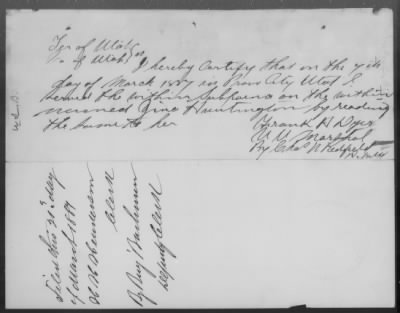 Ter of Utah
Co of Utah ss
I hereby Certify that on the 7th
day of March 1887 in Provo City Utah I
served the within Subpoena on the within
named Huntington by reading
the same to her
Frank H Dyer
U.S. Marshal
By Chas. Redfield
Filed this 21st day
of March 1887
H H Henderson
Clerk
By Benj Bachman
Deputy Clerk